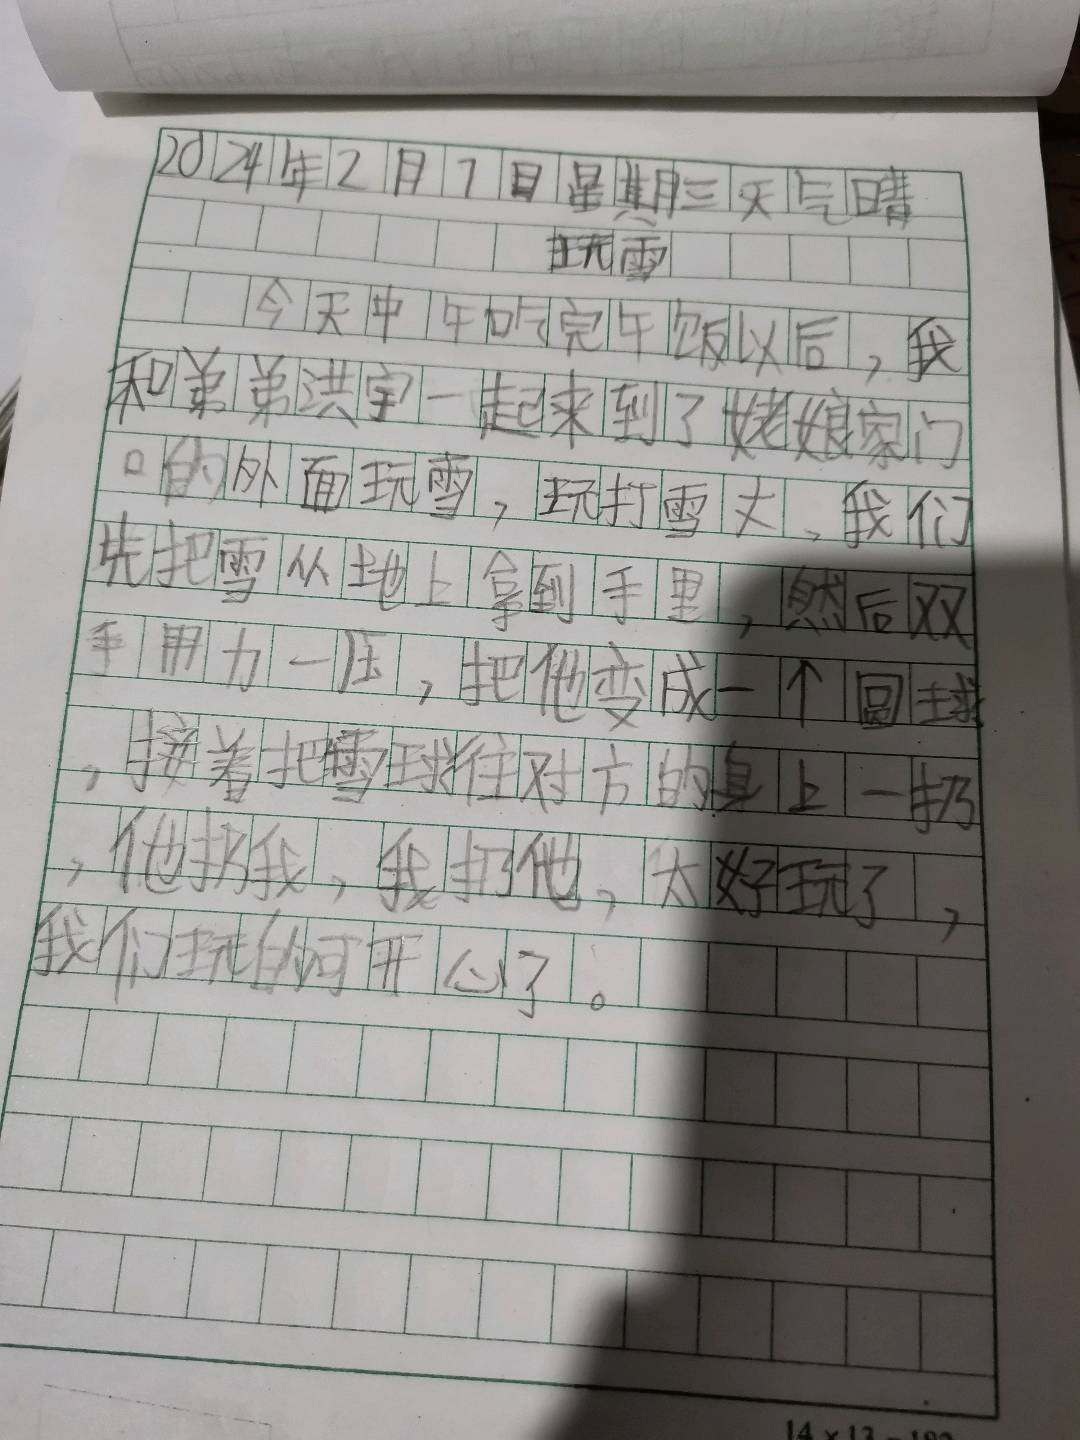 2024年2月7日星期三天气晴
玩雪
今天中午吃完午饭以后，我
和弟弟洪宇一起来到了姥娘家门
口的外面玩雪，玩打雪丈，我们
先把雪从地上拿到手里，然后双
手用力一压，把他变成一个圆球
，接着把雪球往对方的身上一扔
，他扔我，我扔他，太好玩了，
我们玩的可开心了。